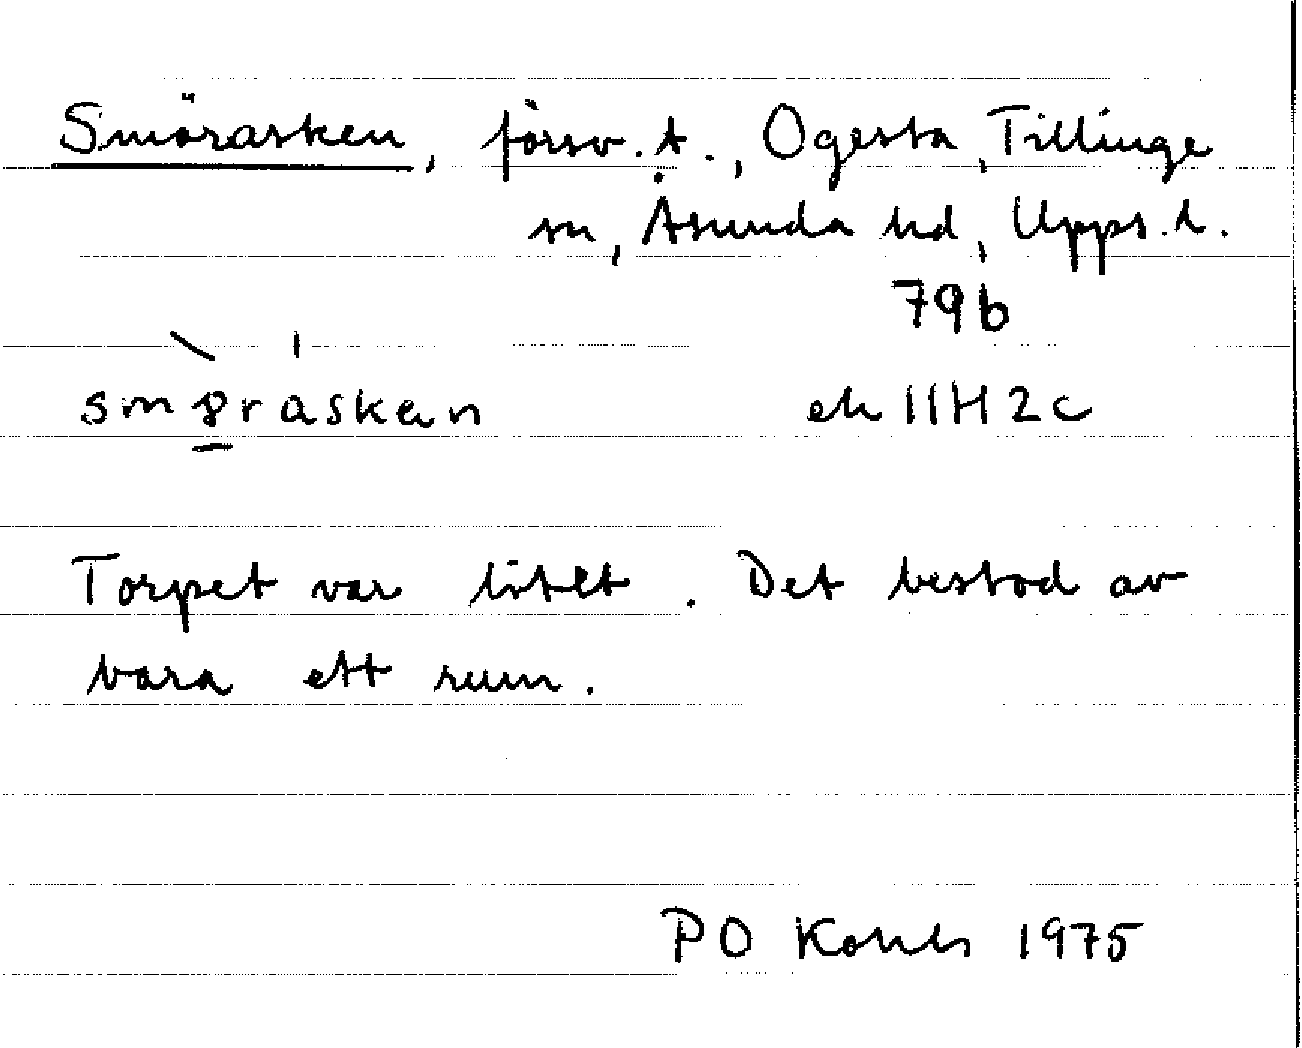 Smörasken, försv. t., Ogesta, Tillinge
sn, Åsunda hd, Upps. l.
79b
smørasken ek 11H2c
Torpet var litet. Det bestod av
bara ett rum.
PO 1975